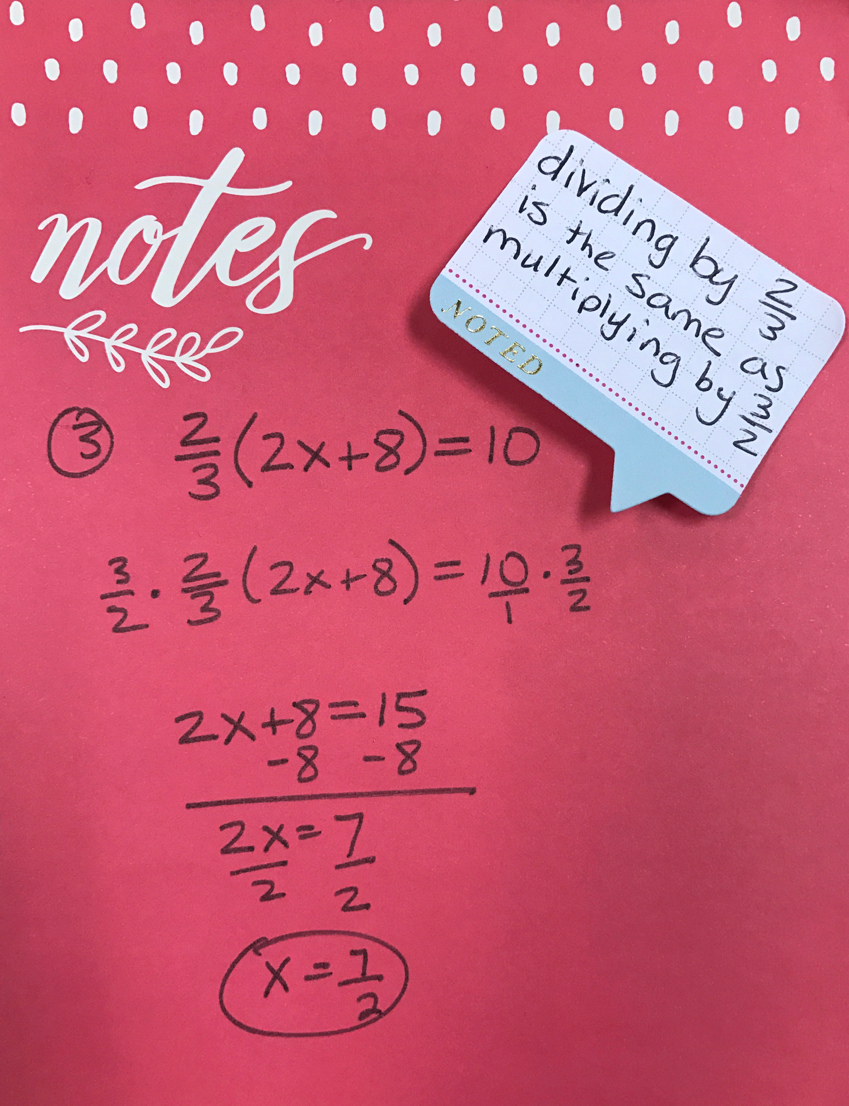 notes
dividing by 2/3
is the same as
multiplying by 3/2
NOTED
③ 2/3(2x+8)=10
3/2 · 2/3(2x+8)=10/1 · 3/2
2x+8=15
-8 -8
2x/2=7/2
x=7/2